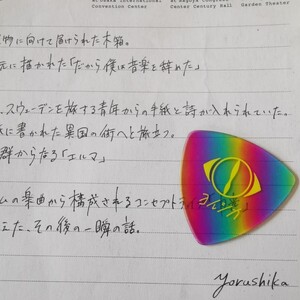 Osaka International Convention Center
Nagoya Congress Center Century Hall
Garden Theater
物に向けて届けられた木箱。
元に描かれた「だから僕は音楽を辞めた」
スウェーデンを旅する青年からの手紙と詩が入れられていた。
に書かれた異国の街へと旅立つ。
群からなる「エルマ」
ムの楽曲から構成されるコンセプトライ
えた、その後の一瞬の話。
Yorushika